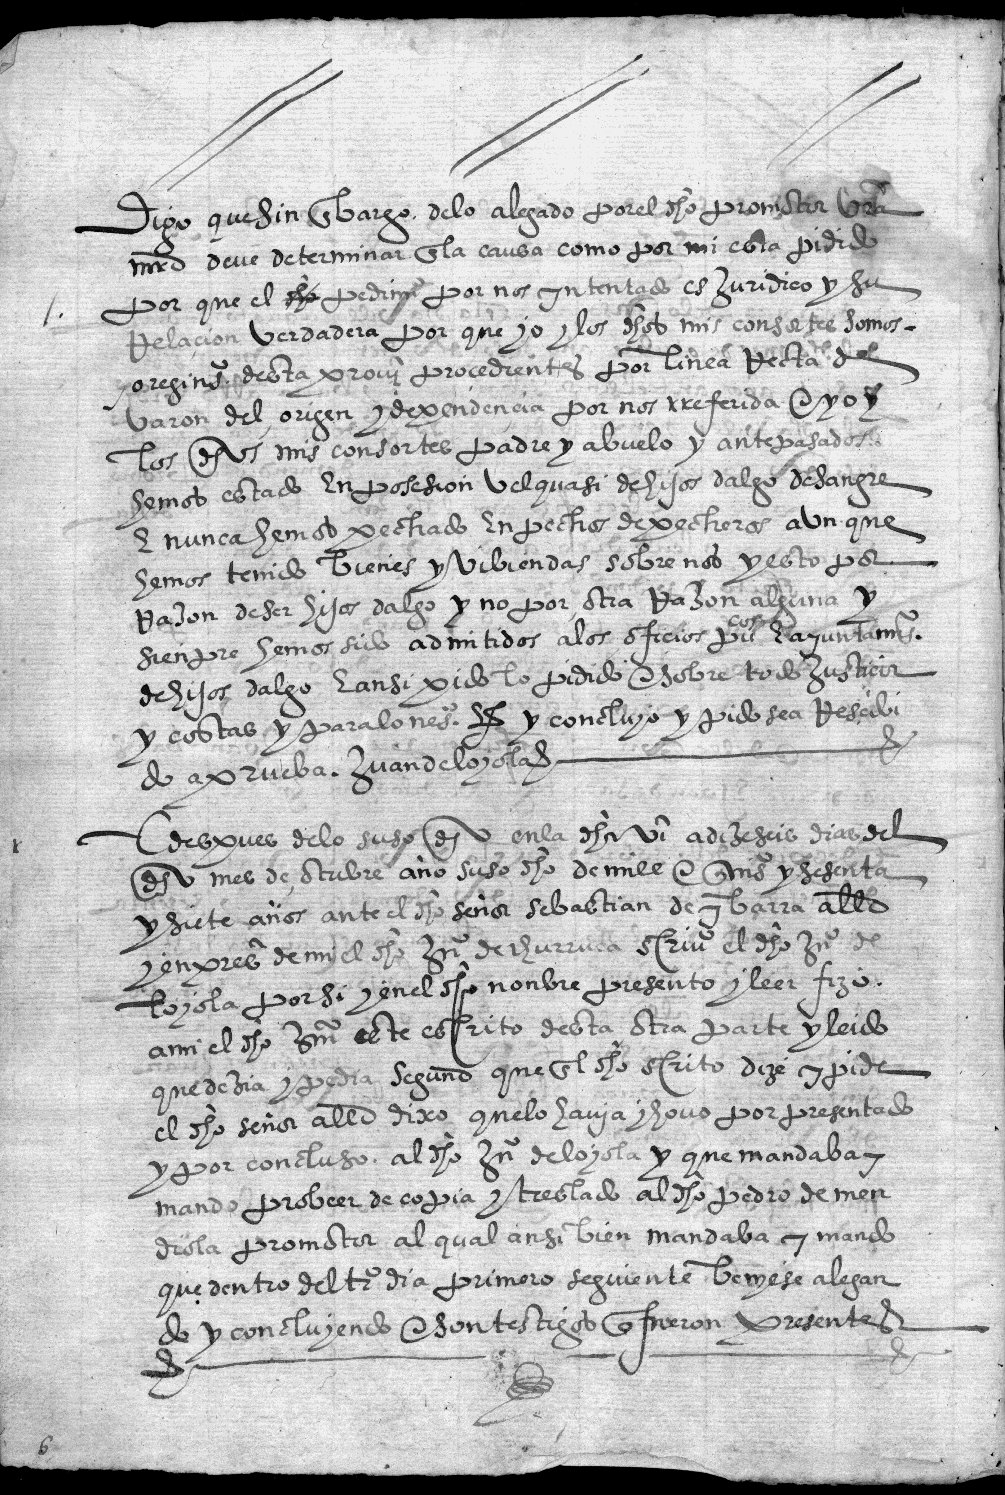 Digo que sin enbargo. delo alegado por el dho promotor vra
md deve determinar en la causa como por mi esta pidido
por que el dho pedimio por nos yntentado es Juridico y su
Relacion verdadera por que yo y los dhos mis consortes somos
oreginos desta prouia procedientes por linea Recta de
varon del origen y dependencia por nos rreferida e yo y
los dhos mis consortes padre y abuelo y antepasados
hemos estado en posesion vel quasi de hijos dalgo de sangre
E nunca hemos pechado en pechos de pecheros aun que
hemos tenido bienes y vibiendas sobre nos y esto por
Razon de ser hijos dalgo y no por otra Razon alguna y
sienpre hemos sido admitidos a los oficios pucos E ayuntamios
de hijos dalgo E ansi pido lo pidido e sobre todo Justicia
y costas y para lo neso y concluyo y pido sea Rescibi
do a prueba. Juan de loyola
E despues delo suso dho en la dha va a dizeseis dias del
dho mes de otubre año suso dho de mill e quios y sesenta
y siete años ante el dho señor sebastian de ybarra alld
y en pres de mi el dho Jno de churruca scrivo el dho Jno de
loyola por si y en el dho nonbre presento y leer fizo
a mi el dho Jno este escrito desta otra parte y leido
que dezia y pedia segund que en el dho scrito dize y pide
el dho señor alld dixo que lo havia y hovo por presentado
y por concluso. al dho Jno de loyola y que mandaba y
mando probeer de copia y treslado al dho pedro de men
diola promotor al qual ansi bien mandaba y mando
que dentro del tro dia primero seguiente veniese alegan
do y concluyendo e son testigos que fueron presentes
6